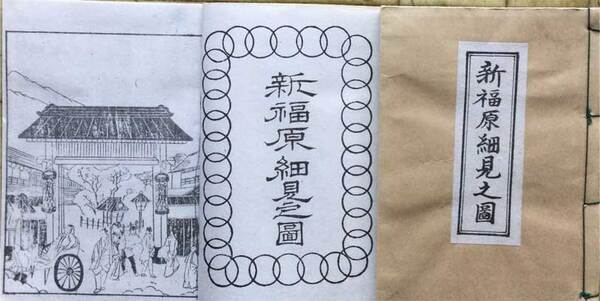 新福原細見之圖
新福原細見之圖